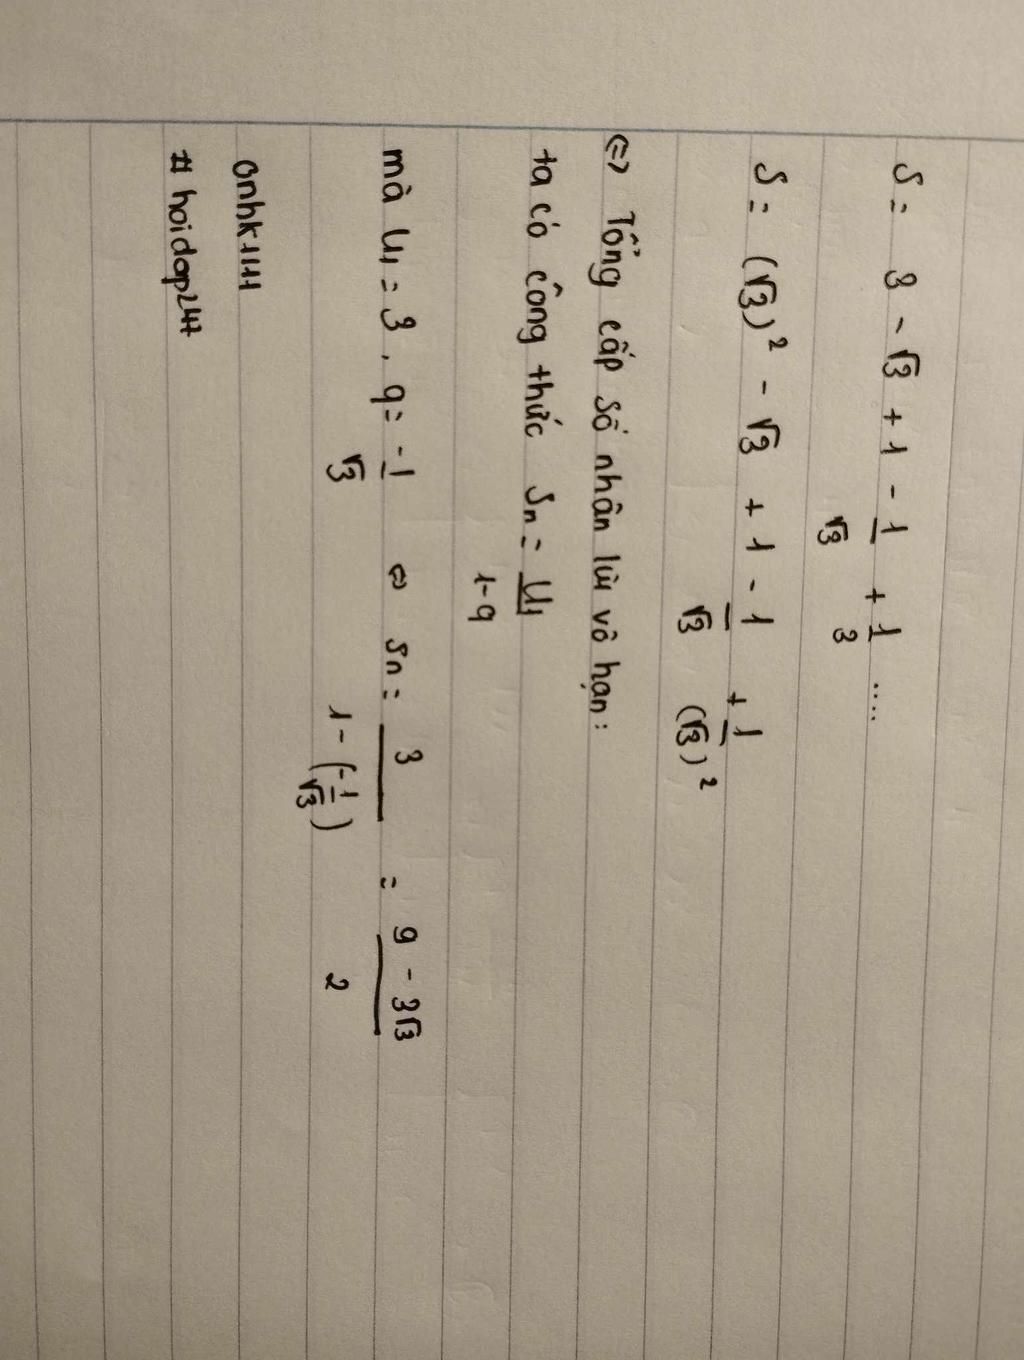 S = 3 - √3 + 1 - 1/√3 + 1/3 .....
S = (√3)² - √3 + 1 - 1/√3 + 1/(√3)²
⇔ Tổng cấp số nhân lùi vô hạn:
ta có công thức Sn = U1/1-q
mà U1 = 3, q = -1/√3 ⇔ Sn = 3/1-(-1/√3) = 9-3√3/2
# hoidap247